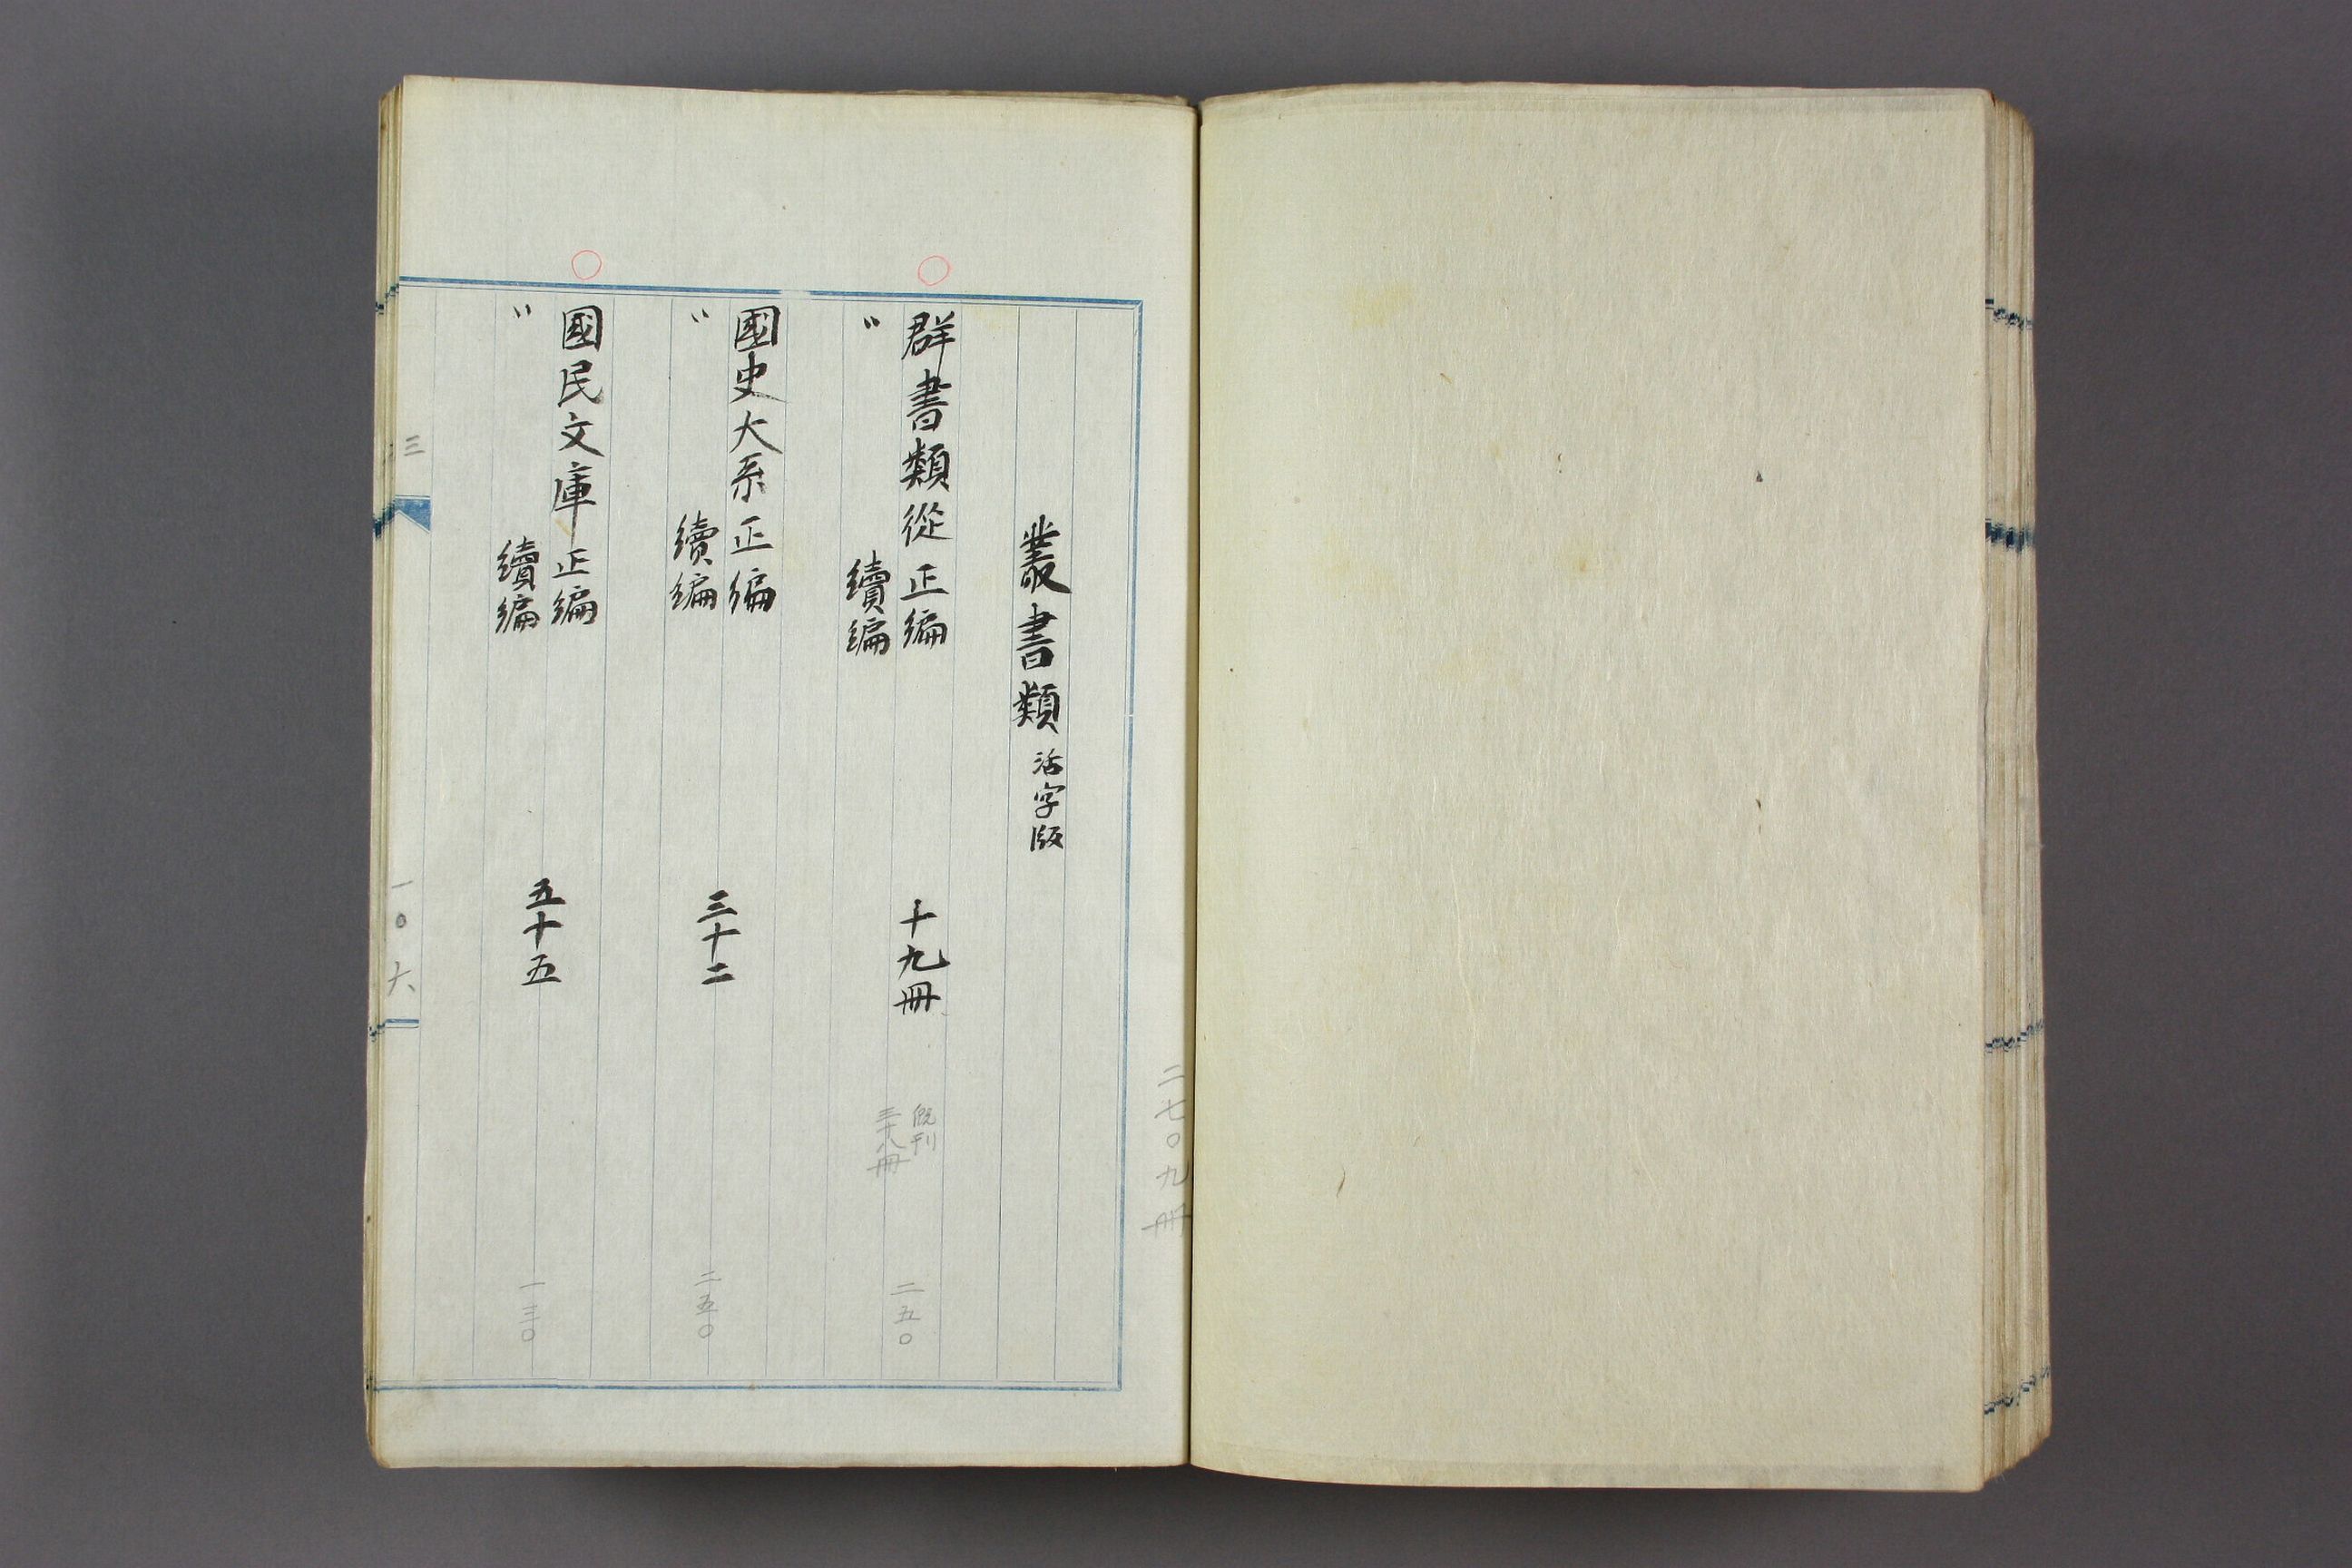 二七〇九冊
叢書類 活字版
群書類從 正編
〃 續編
十九冊
既刊
三十八冊
二五〇
國史大系 正編
〃 續編
三十二
二五〇
國民文庫 正編
〃 續編
五十五
一三〇
三
一〇六